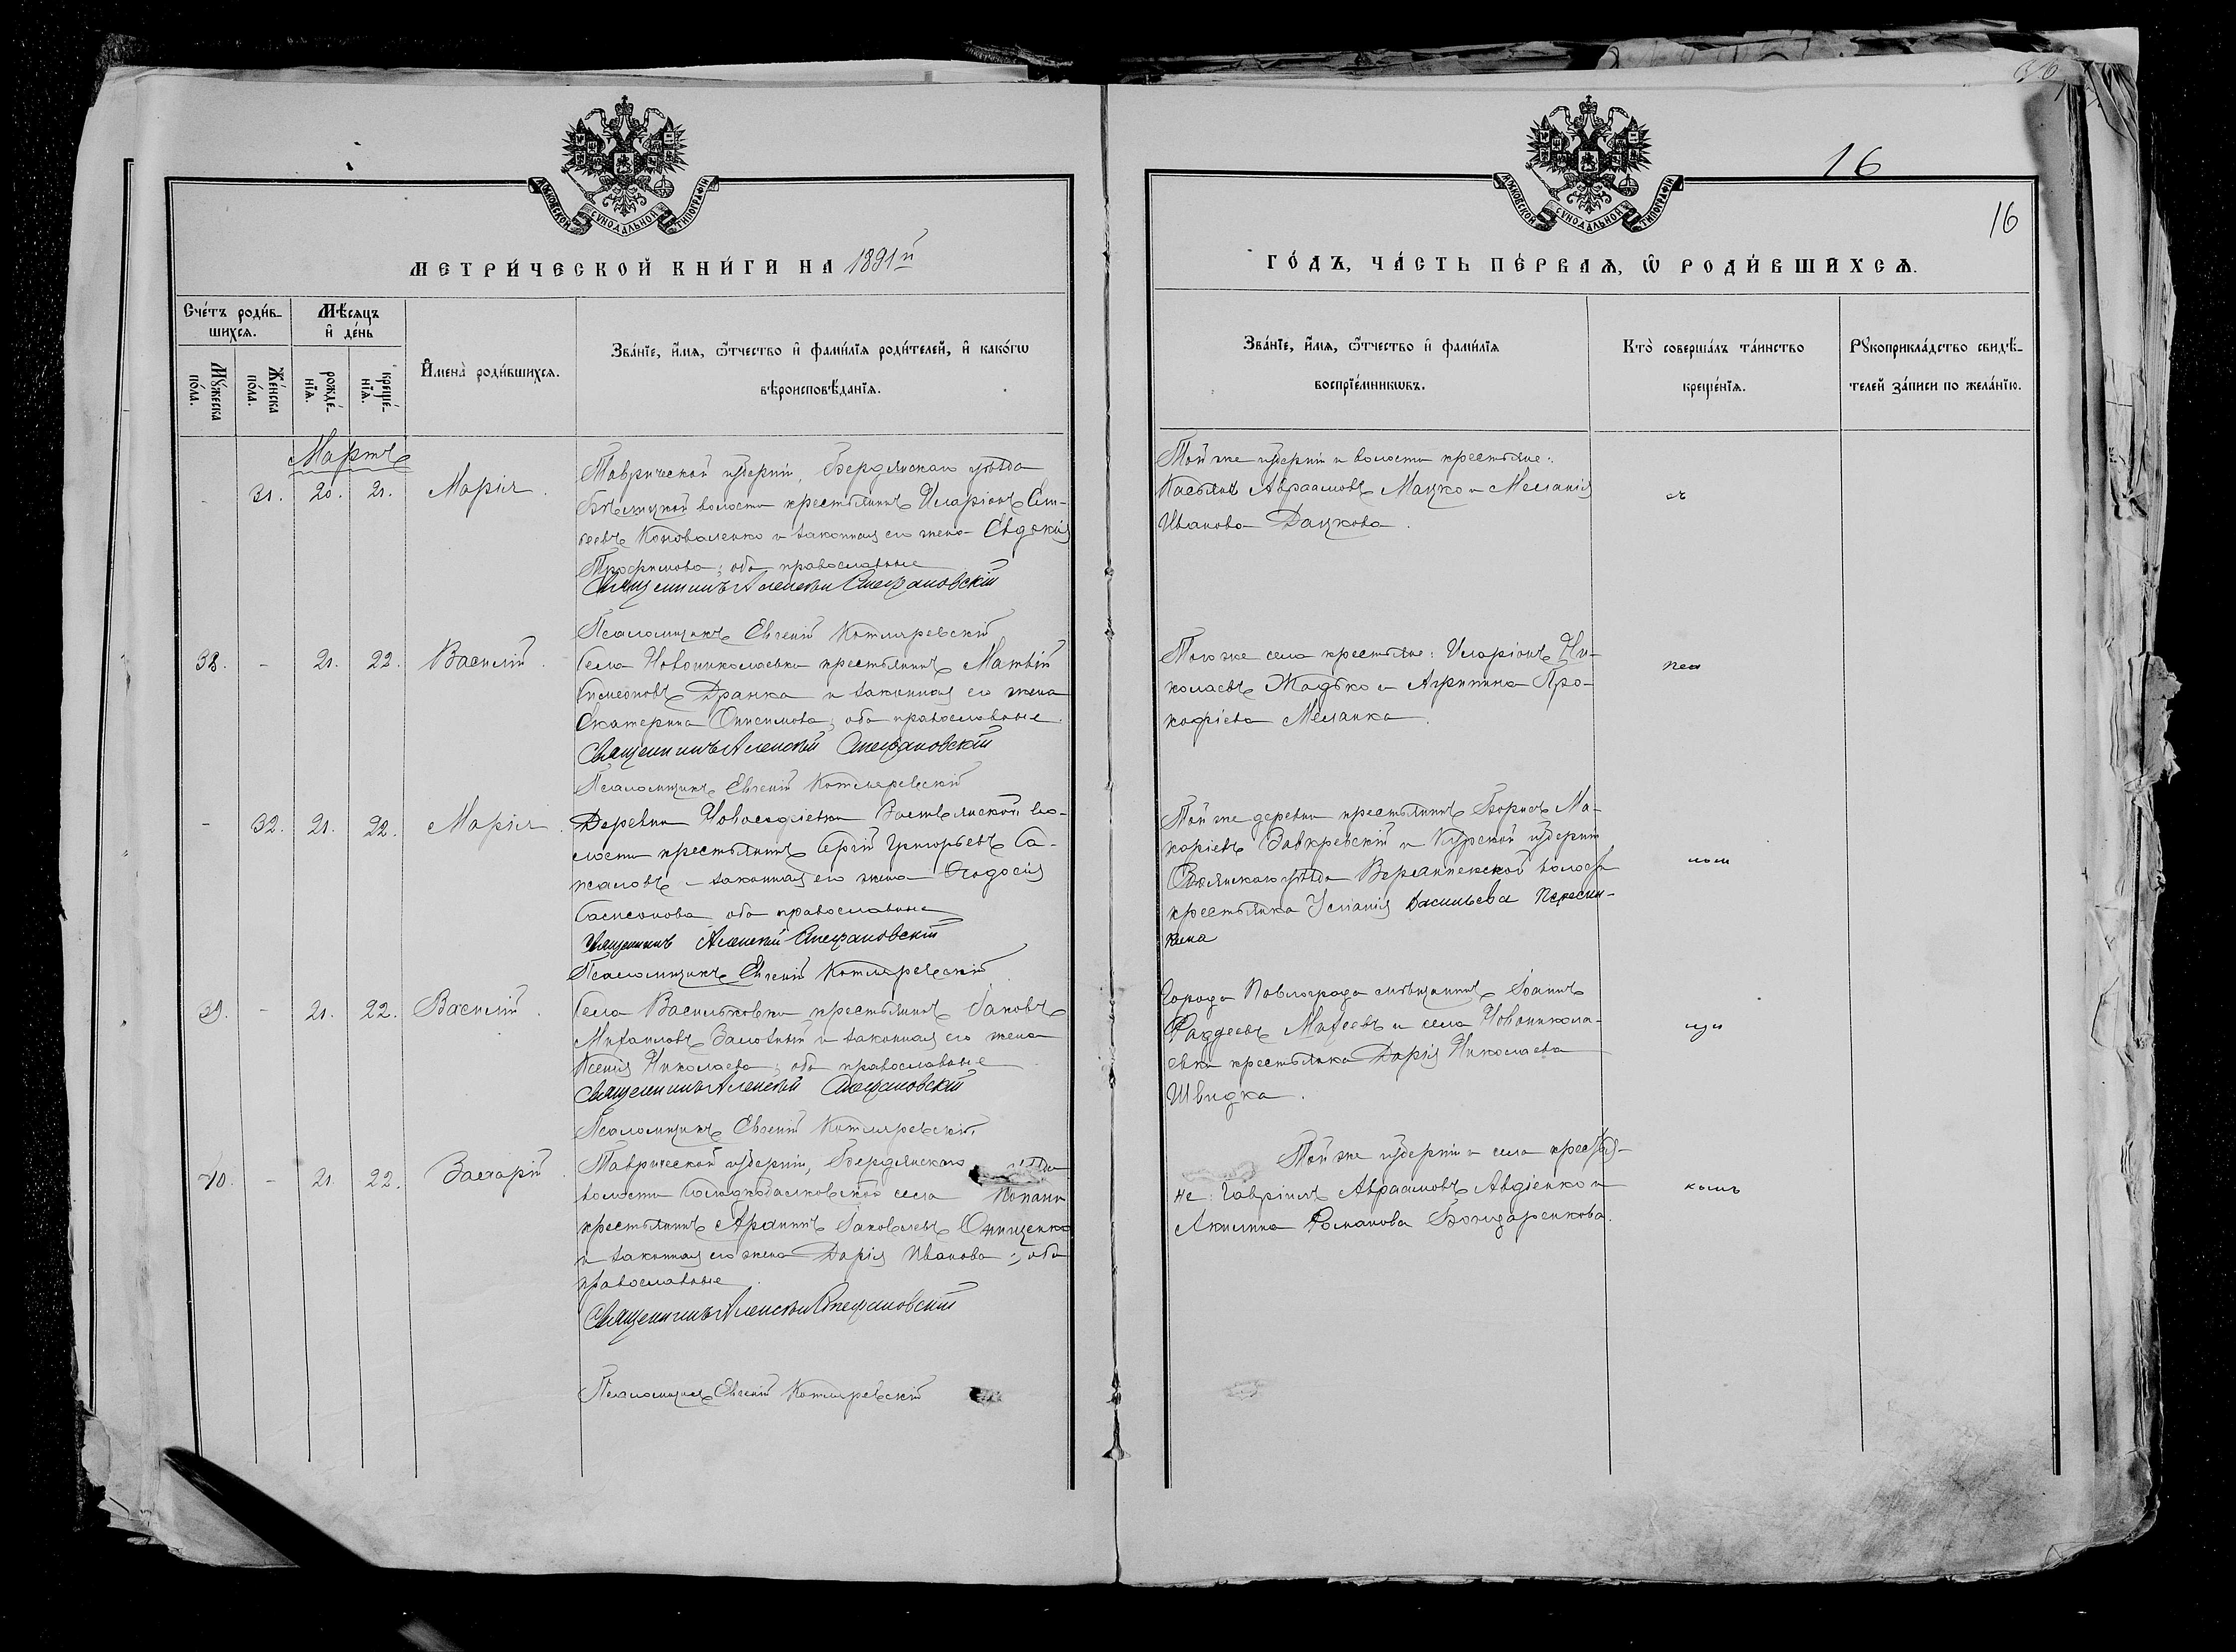 36
16
16
МОСКОВСКОЙ СѴНОДАЛЬНОЙ ТИПОГРАФІИ
МЕТРИ́ЧЕСКОЙ КНИ́ГИ НА 1891й
Сче́тъ роди́в-
шихсѧ.
Мѣ́сѧцъ
и҆ де́нь
Мꙋ́жеска по́ла.
Же́нска по́ла.
рожде́-
нїѧ.
креще́-
нїѧ.
И҆мена̀ роди́вшихсѧ.
Зва́нїе, и҆́мѧ, ѻ҆́тчество и҆ фами́лїѧ роди́телей, и҆ како́гѡ
вѣроисповѣ́данїѧ.
Мартъ
- 31. 20. 21. Марія.
Таврической губерніи, Бердянскаго уѣзда
волости крестьянинъ Иларіонъ
Коноваленко и законная его жена Евдокія
Трофимова; оба православные
Священникъ Алексѣй Стефановскій
Псаломщикъ Евгеній Котляревскій
38. - 21. 22. Василій.
Села Новониколаевки крестьянинъ Матвій
Симеоновъ Дранка и законная его жена
Екатерина Онисимова; оба православные.
Священникъ Алексѣй Стефановскій
Псаломщикъ Евгеній Котляревскій
- 32. 21. 22. Марія.
Деревни во-
лости крестьянинъ Сергій Григорьевъ Са-
жаловъ и законная его жена Ѳеодосія
Самсонова оба православные
Священникъ Алексѣй Стефановскій
Псаломщикъ Евгеній Котляревскій
39. - 21. 22. Василій.
Села Васильковки крестьянинъ Іаковъ
Михаиловъ и законная его жена
Ксенія Николаева; оба православные
Священникъ Алексѣй Стефановскій
Псаломщикъ Евгеній Котляревскій.
40. - 21. 22. Захарій.
Таврической губерніи, Бердянскаго уѣзда
волости села Попани
крестьянинъ Іаковлевъ Онищенко
и законная его жена Дарія Иванова; оба
православные.
Священникъ Алексѣй Стефановскій
Псаломщикъ Евгеній Котляревскій
МОСКОВСКОЙ СѴНОДАЛЬНОЙ ТИПОГРАФІИ
ГО́ДЪ, ЧА́СТЬ ПЕ́РВАѦ, Ѡ҆ РОДИ́ВШИХСѦ.
Зва́нїе, и҆́мѧ, ѻ҆́тчество и҆ фами́лїѧ
воспрїе́мникѡвъ.
Кто̀ соверша́лъ та́инство
креще́нїѧ.
Рꙋкоприкла́дство свидѣ́-
телей за́писи по жела́нїю.
Той же губерніи и волости крестьяне:
Касьянъ Авраамовъ Мацко и Меланія
Иванова Дацкова.
Того же села крестьяне: Иларіонъ Ни-
колаевъ Жадько и Агрипина Про-
кофіева Меланка.
Той же деревни крестьянинъ Борисъ Ма-
каріевъ Закревскій и Курской губерніи
уѣзда волости
крестьянка Васильева
кина
Города Павлограда мѣщанинъ Іоаннъ
Фаддеевъ и села Новоникола-
евки крестьянка Дарія Николаева
Швидка.
Той же губерніи и села крестья-
не: Гавріилъ Авраамовъ Авдіенко и
Акилина Романова Бондаренкова.